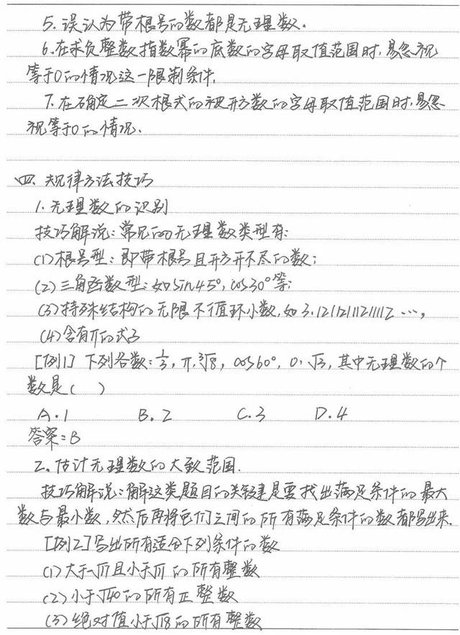 5. 误认为带根号的数都是无理数.
6. 在求负整数指数幂的底数的字母取值范围时,易忽视
等于0的情况这一限制条件.
7. 在确定二次根式的被开方数的字母取值范围时,易忽
视等于0的情况.
四、规律方法技巧
1. 无理数的识别
技巧解说:常见的无理数类型有:
(1)根号型:即带根号且开方开不尽的数;
(2)三角函数型:如sin45°,cos30°等;
(3)特殊结构的无限不循环小数,如3.1211211121112…,
(4)含有π的式子
[例1] 下列各数:1/3, π, ∛8, cos60°, 0, √3, 其中无理数的个
数是( )
A.1 B.2 C.3 D.4
答案:B
2. 估计无理数的大致范围.
技巧解说:解这类题目的关键是要找出满足条件的最大
数与最小数,然后再将它们之间的所有满足条件的数都写出来.
[例2]写出所有适合下列条件的数
(1)大于 且小于√11的所有整数
(2)小于√40的所有正整数
(3)绝对值小于√18的所有整数